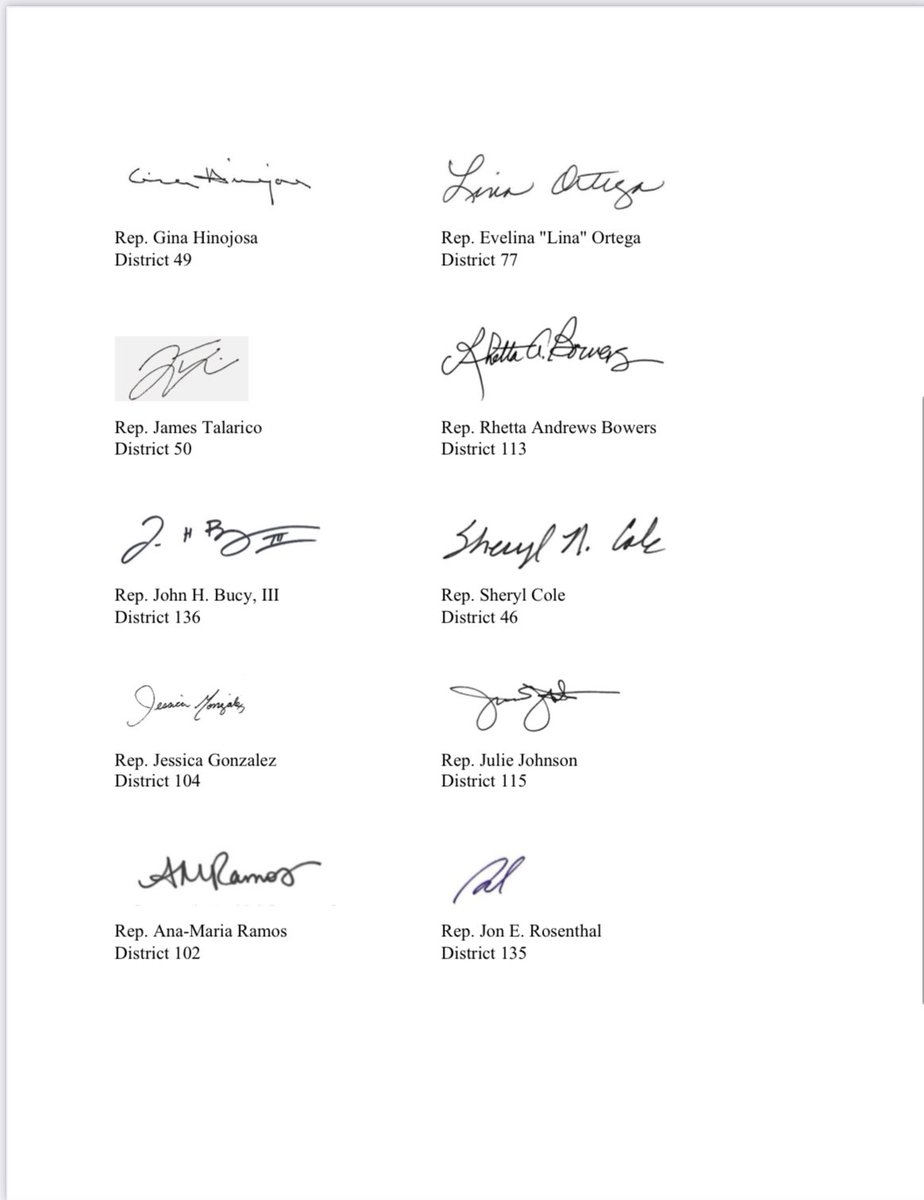 Gina Hinojosa
Lina Ortega
Rep. Gina Hinojosa
District 49
Rep. Evelina "Lina" Ortega
District 77
Rhetta A. Bowers
Rep. James Talarico
District 50
Rep. Rhetta Andrews Bowers
District 113
J. H B III
Sheryl N. Cole
Rep. John H. Bucy, III
District 136
Rep. Sheryl Cole
District 46
Jessica Gonzalez
Rep. Jessica Gonzalez
District 104
Rep. Julie Johnson
District 115
AMRamos
Rep. Ana-Maria Ramos
District 102
Rep. Jon E. Rosenthal
District 135